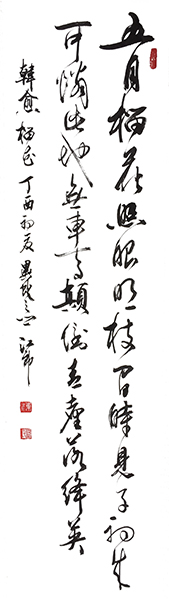 五月榴花照眼明枝间時見子初成
可憐此地無車馬顛倒青苔落絳英
韓愈榴花丁酉初夏